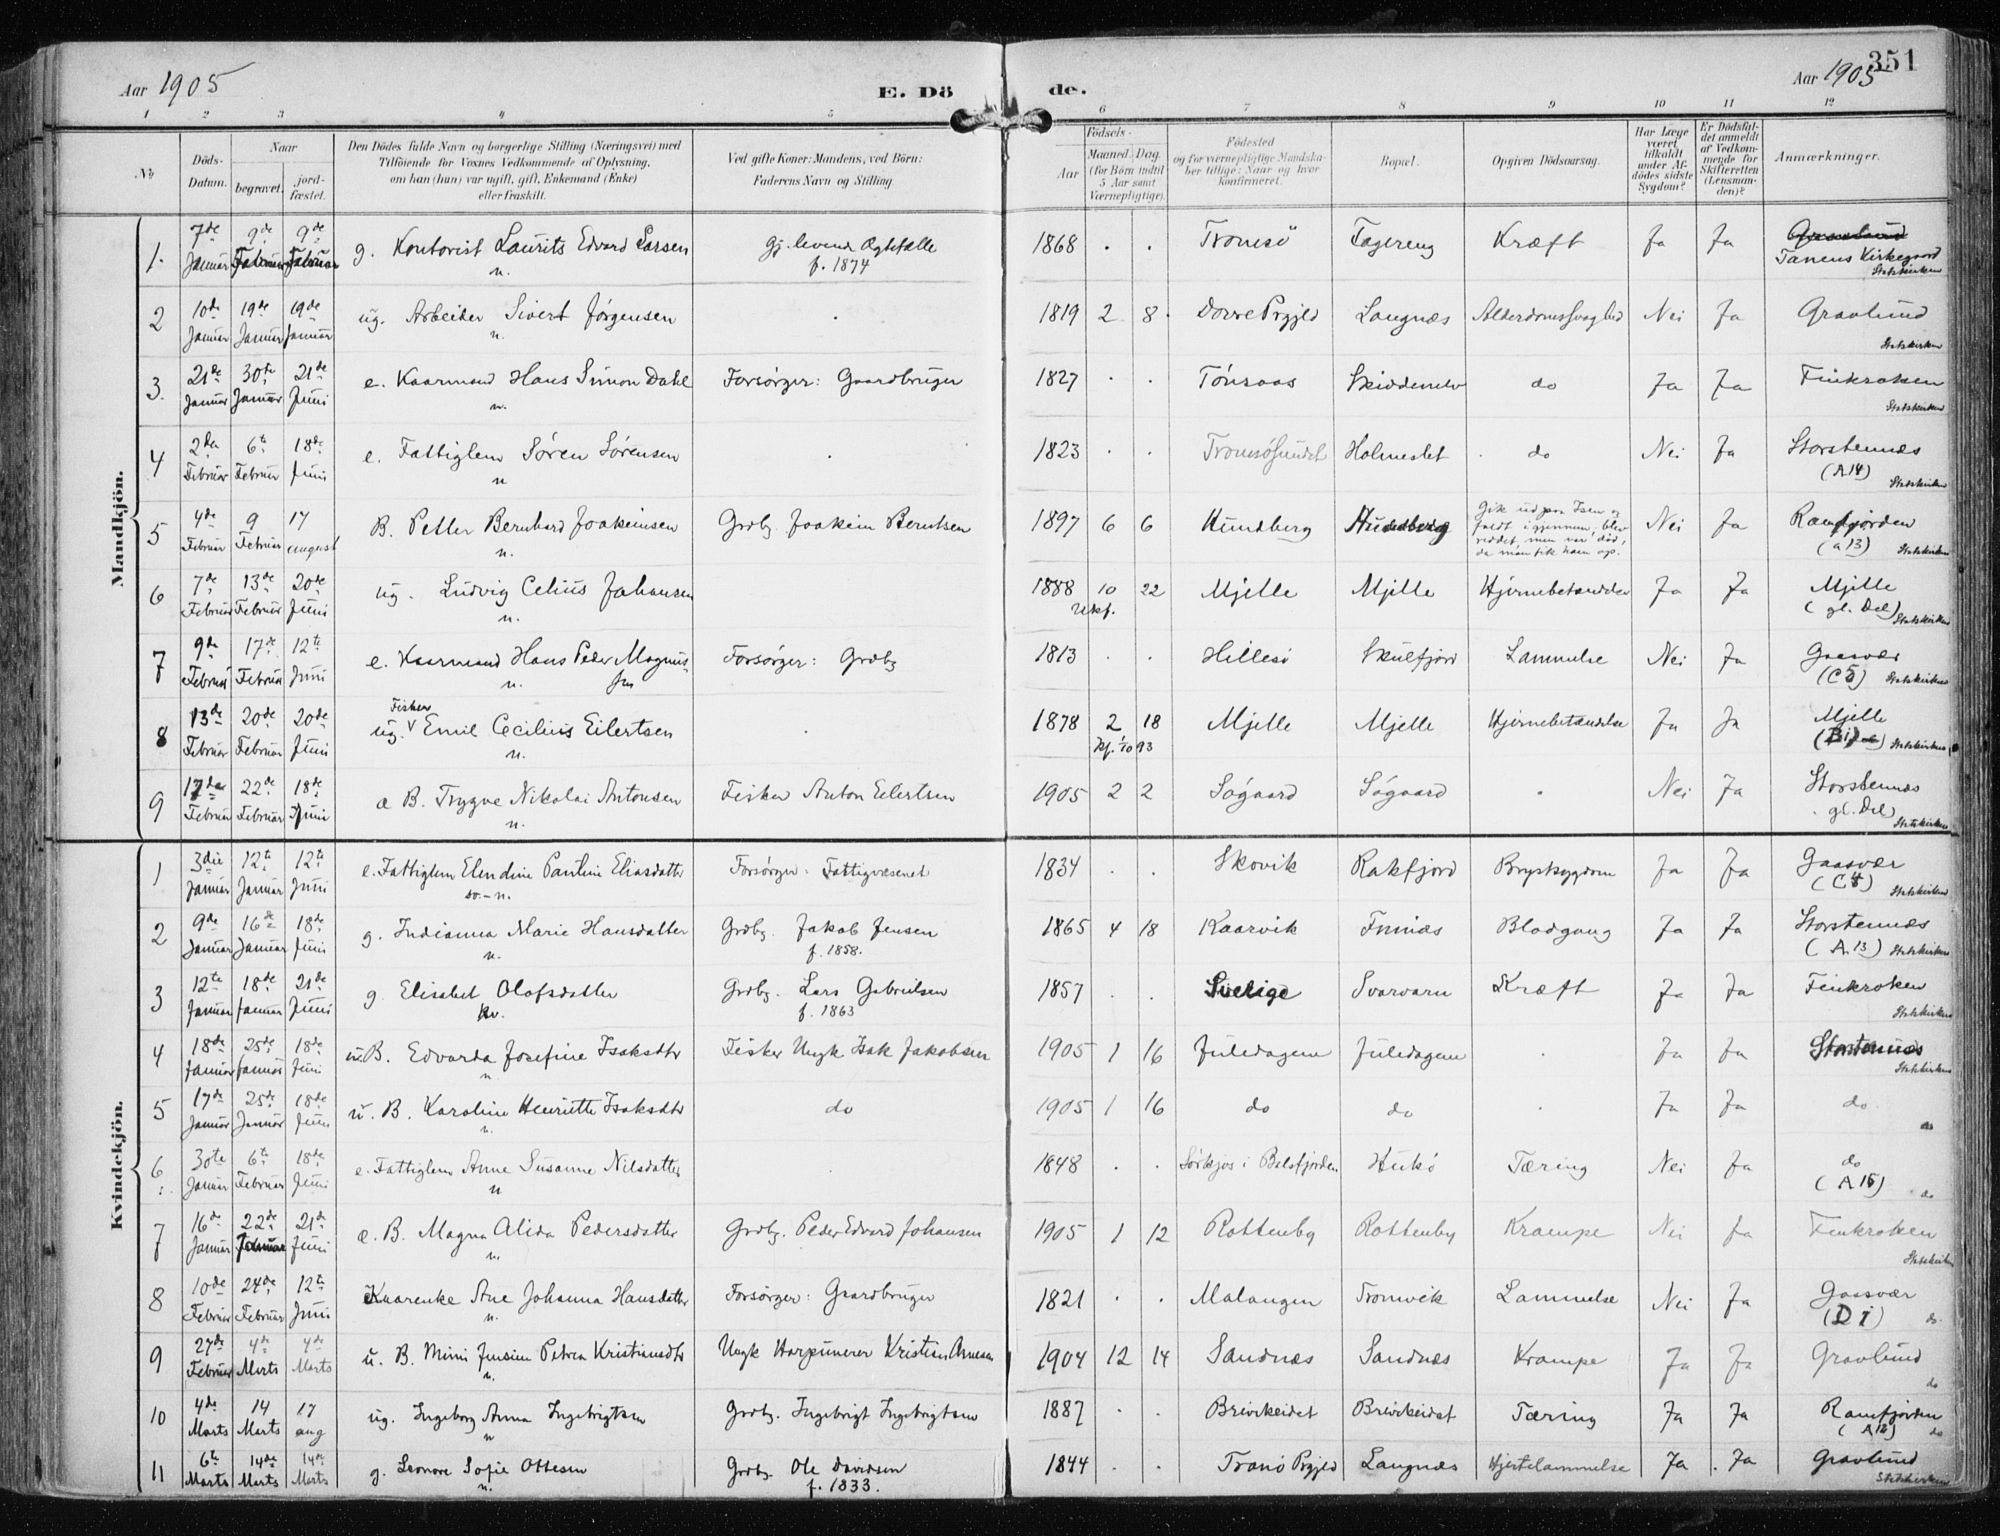 Aar 1905
E. Dö
de.
Aar 1905
351
1 2 3 4 5 6 7 8 9 10 11 12
No
Döds-Datum.
Naar
begravet.
jord-fæstet.
Den Dödes fulde Navn og borgerlige Stilling (Næringsvei) med
Tilföiende for Voxnes Vedkommende af Oplysning,
om han (hun) var ugift, gift, Enkemand (Enke)
eller fraskilt.
Ved gifte Koner: Mandens, ved Börn:
Faderens Navn og Stilling.
Födsels-
Aar
Maaned. Dag.
(for Börn indtil
5 Aar samt
Værnepligtige).
Födested
og for værnepligtige Mandska-
ber tillige: Naar og hvor
konfirmeret.
Bopæl.
Opgiven Dödsaarsag.
Har Læge
været
tilkaldt
under Af-
dödes sidste
Sygdom?
Er Dödsfal-
det anmeldt
af Vedkom-
mende for
Skifteretten
(Lensman-
den)?
Anmærkninger.
Mandkjön.
1. 7de Januar 9de Februar 9de Februar g. Kontorist Laurits Edvard Larsen n. Gj. levende Ægtefælle f. 1874 1868 . . Tromsö Fagereng Kræft Ja Ja Tanens Kirkegaard Statskirken
2 10de Januar 19de Januar 19de Januar ug. Arbeider Sivert Jørgensen n. . 1819 2 8 Dovre Prgjld Langnæs Nei Ja Gravlund Statskirken
3. 21de Januar 30te Januar 21de Juni e. Kaarmand Hans Simon Dahl n. Forsørger: Gaardbruger 1827 . . Tönsaas Skiddenelv do Ja Ja Finkroken Statskirken
4 2den Februar 6te Februar 18de Juni e. Fattiglem Søren Sørensen n . 1823 . . Tromsösundet Holmeslet do Nei Ja Storstennæs (A14) Statskirken
5 4de Februar 9 Februar 17 august B. Petter Bernhard Joakimsen n. Grdbg. Joakim Berntsen 1897 6 6 Hundberg Hundberg Gik ud paa Isen og faldt igjennem, blev reddet, men var død, da man fik ham op. Nei Ja Ramfjorden (a13) Statskirken
6 7de Februar 13de Februar 20de Juni ug. Ludvig Celius Johansen n. 1888 10 22 Ukf. Mjelle Mjelle Ja Ja Mjelle (gl. Del) Statskirken
7 9de Februar 17de Februar 12te Juni e. Kaarmand Hans Peder Magnus- sen n. Forsørger: Grdbg 1813 . . Hillesö Skulfjord Lammelse Nei Ja Gaasvær Statskirken
8 13de Februar 20de Februar 20de Juni ug. Fisker Emil Cecilius Eilertsen n. . 1878 2 18 Kf. 1/10 93 Mjelle Mjelle Hjernebetændelse Ja Ja Mjelle Statskirken
9 17den Februar 22de Februar 18de Juni æ B. Trygve Nikolai Antonsen n. Fisker Anton Eilertsen 1905 2 2 Søgaard Søgaard . Nei Ja Storstennæs gl. Del Statskirken
Kvindekjön.
1 3die Januar 12te Januar 12te Juni e. Fattiglem Elendine Pauline Eliasdatter Forsørger: Fattigvæsenet 1834 . . Skovik Rakfjord Brystsygdom Ja Ja Gaasvær Statskirken
2 9de Januar 16de Januar 18de Juni g. Indianna Marie Hansdatter n. Grdbg. Jakob Jensen f. 1858. 1865 4 18 Kaarvik Finnæs Blodgang Ja Ja Storstennæs (A.13) Statskirken
3 12te Januar 18de Januar 21de Juni g. Elisabet Olafsdatter kv. Grdbg. Lars Gabrielsen f. 1863 1857 . . Sverige Svarvaru Kræft Ja Ja Finkroken Statskirken
4 18de Januar 25de Januar 18de Juni u. B. Edvarda Josefine Isaksdtr n Fisker Ungk Isak Jakobsen 1905 1 16 Juledagem Juledagem . Ja Ja Storstennæs Statskirken
5 17de Januar 25de Januar 18de Juni u. B. Karoline Henriette Isaksdtr n. do 1905 1 16 do do . Ja Ja do do
6 30te Januar 6te Februar 18de Juni e. Fattiglem Anne Susanne Nilsdatter n 1848 . . Sørkjos i Balsfjorden Hukø Tæring Nei Ja do (A15) do
7 16de Januar 22de Februar 21de Juni æ. B. Magna Alida Pedersdatter n. Grdbg. Peder Edvard Johansen 1905 1 12 Rottenby Rottenby Krampe Nei Ja Finkroken Statskirken
8 10de Februar 24de Februar 12te Juni Kaarenke Ane Johanna Hansdatter n. Forsørger: Gaardbruger 1821 . . Malangen Tromvik Lammelse Nei Ja Gaasvær do
9 27de Februar 4de Marts 4de Marts u. B. Mimi Jensine Petrea Kristiansdtr n. Ungk Harpunerer Kristian Arnesen 1904 12 14 Sandnæs Sandnæs Krampe Ja Ja Gravlund do
10 4de Marts 14 Marts 17 aug ug. Ingeborg Anna Ingebrigtsen n Grdbg. Ingebrigt Ingebrigtsen 1887 . . Breivikeidet Breivikeidet Tæring Ja Ja Ramfjorden (A12) do
11 6te Marts 14de Marts 14de Marts g. Leonore Sofie Ottesen n. Grdbg. Ole Davidsen f. 1833. 1844 . . Tranö Prgjld Langnæs Hjertelammelse Ja . Ja Gravlund Statskirken